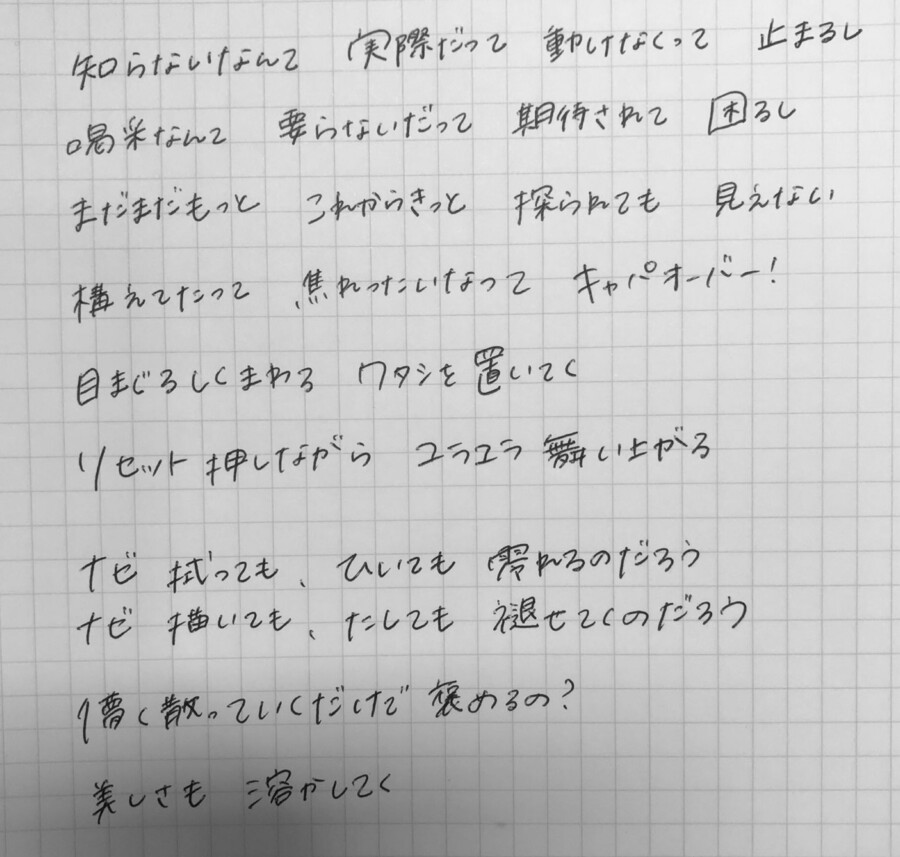 知らないなんて 実際だって 動けなくって 止まるし
喝采なんて 要らないだって 期待されて 困るし
まだまだもっと これからきっと 探られても 見えない
構えてたって 焦れったいなって キャパオーバー!
目まぐるしくまわる ワタシを置いてく
リセット押しながら ユラユラ舞い上がる
ナゼ 拭っても、ひいても 零れるのだろう
ナゼ 描いても、たしても 褪せてくのだろう
儚く散っていくだけで 褒めるの?
美しさも 溶かしてく